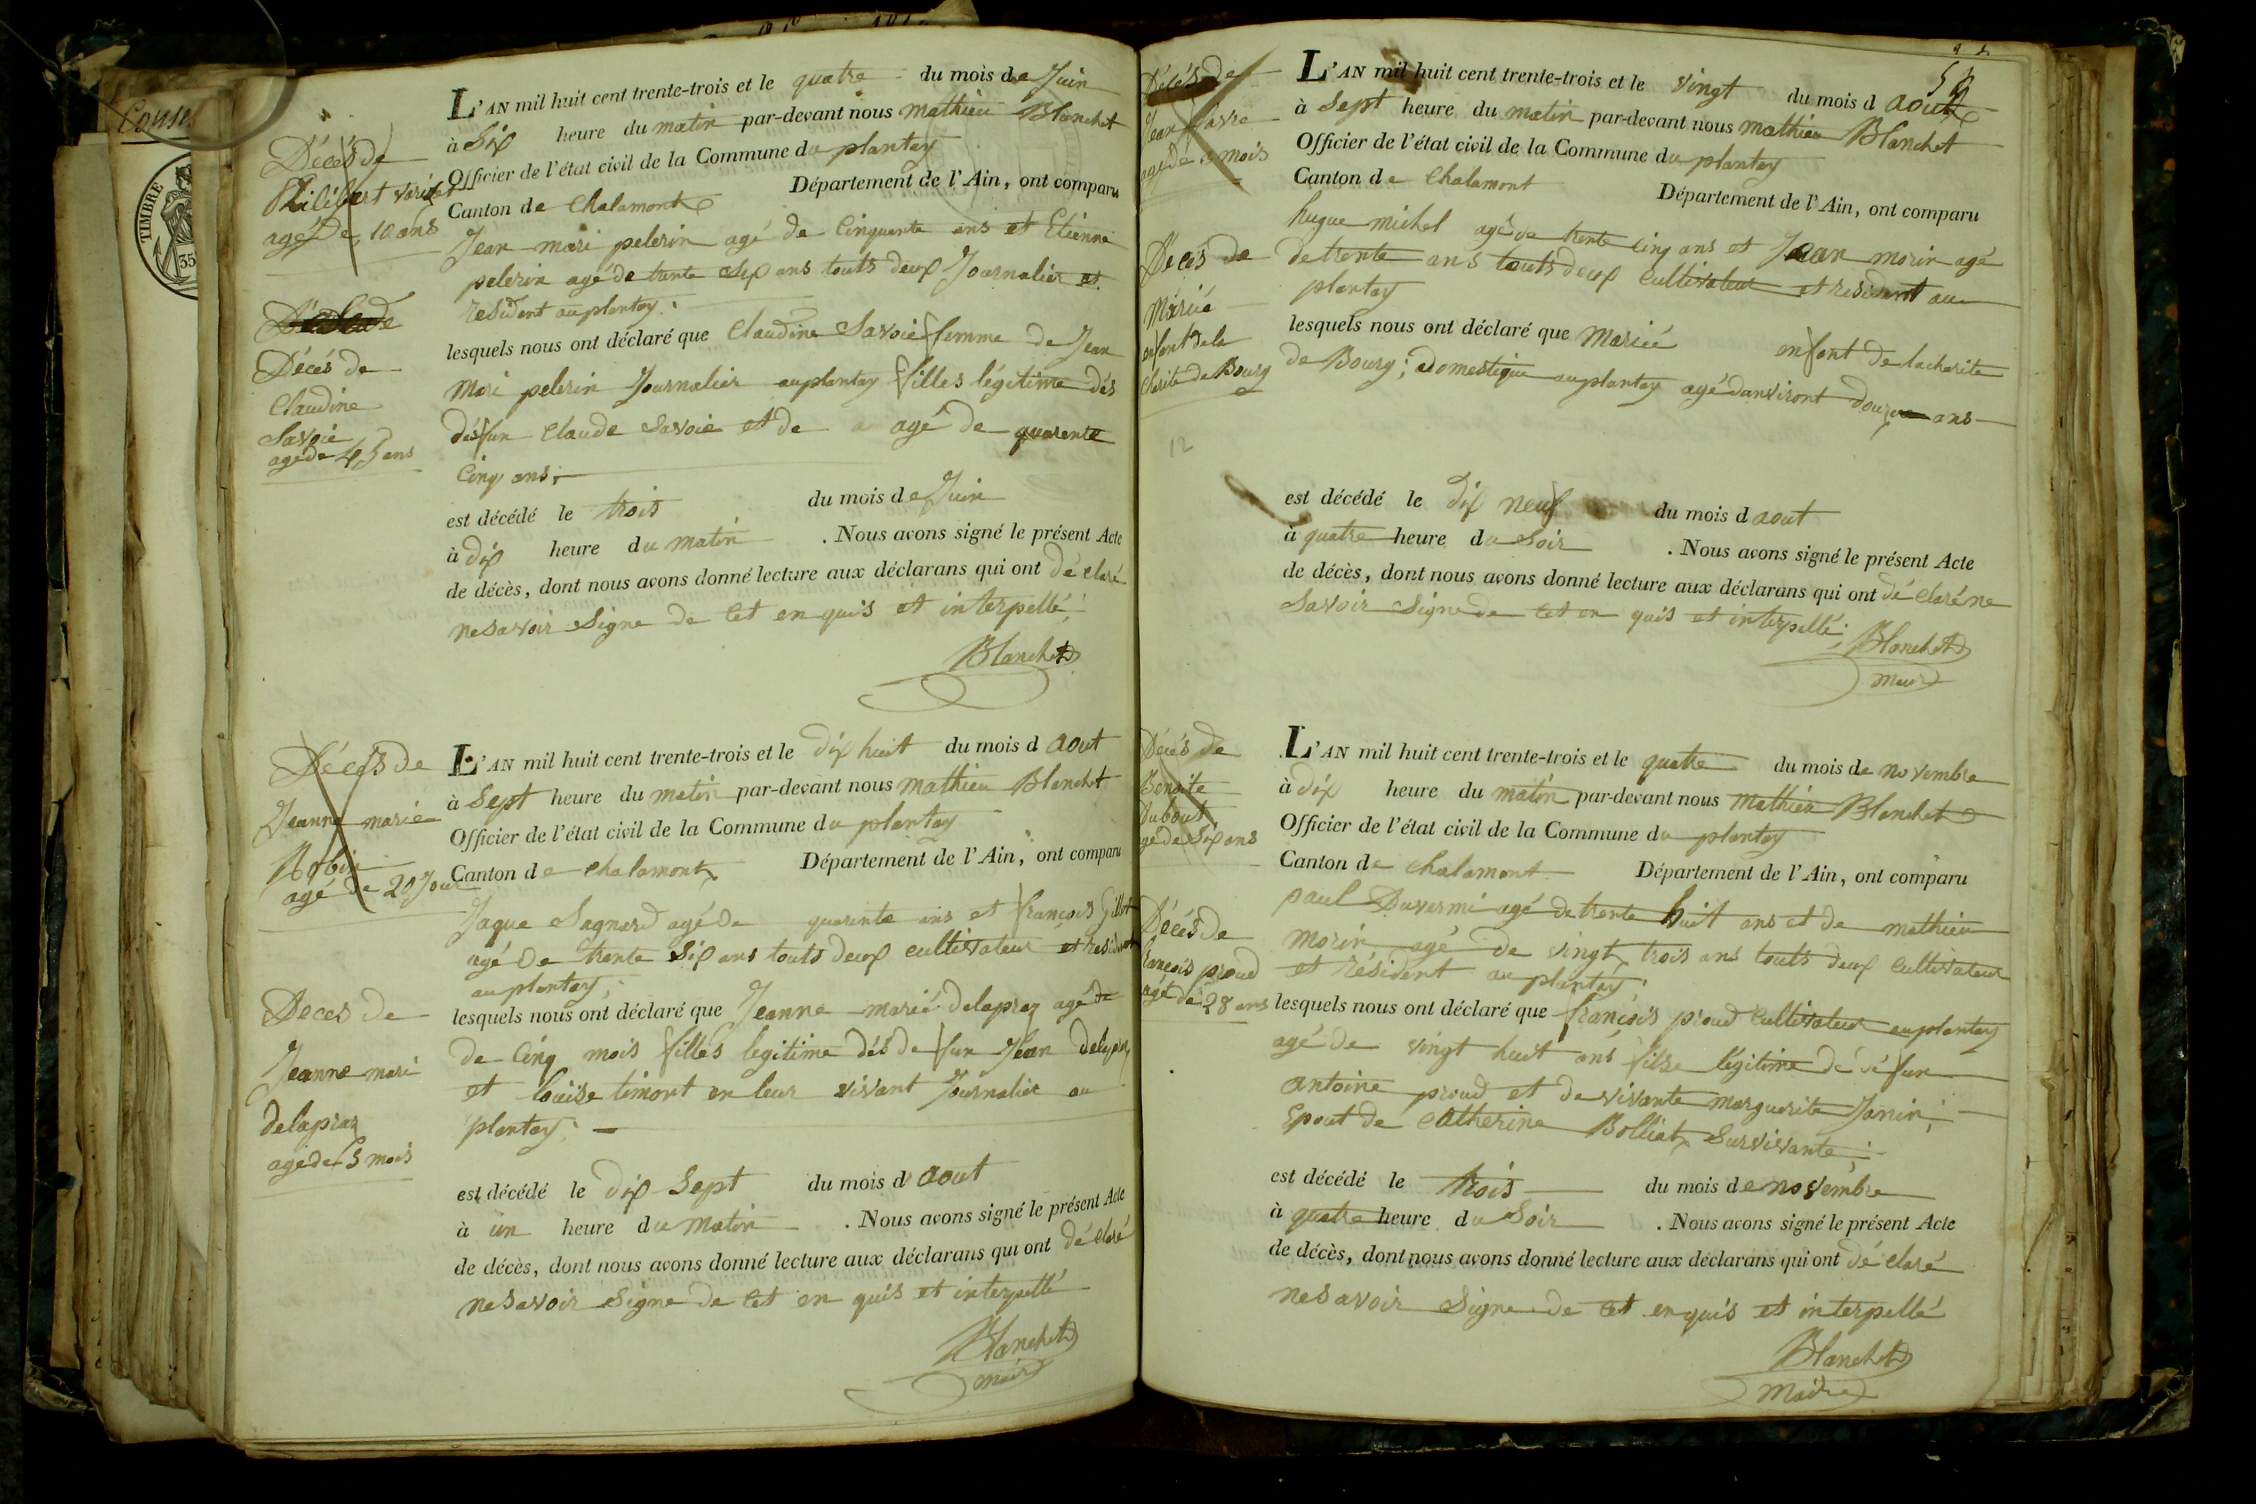 Conse
TIMBRE
35
Décès de
Philibert
agé de 10 ans
Décès de
Claudine
Savoie
agé de 45 ans
L'AN mil huit cent trente-trois et le quatre du mois de Juin
à Six heure du matin par-devant nous mathieu Blanchet
Officier de l'état civil de la Commune du plantay
Canton de Chalamont Département de l'Ain, ont comparu
Jean mari pelerin agé de Cinquante ans et Etienne
pelerin agé de trente Six ans touts deux Journalier et
resident au plantay.
lesquels nous ont déclaré que Claudine Savoie femme de Jean
Mari pelerin Journalier au plantay filles légitime dés
défun Claude Savoie et de a agé de quarente
Cinq ans
est décédé le trois du mois de Juin
à dix heure du matin . Nous avons signé le présent Acte
de décès, dont nous avons donné lecture aux déclarans qui ont déclaré
ne savoir Signe de Cet en quis et interpellé;
Blanchet
Décés de
Jeanne marie
Robin
agé de 20 Jour
Deces de
Jeanne mari
delapraz
agé de 5 mois
L'AN mil huit cent trente-trois et le dix huit du mois d aout
à Sept heure du matin par-devant nous mathieu Blanchet
Officier de l'état civil de la Commune du plantay
Canton de Chalamont Département de l'Ain, ont comparu
Jaque Sagnard agé de quarente ans et françois Gillet
agé de trente Six ans touts deux cultivateur et resident
au plantay;
lesquels nous ont déclaré que Jeanne marié delapraz agé de
de Cinq mois filles legitime dés de fun Jean delapraz
et Louise timont en leur vivant Journalier au
plantay;
est décédé le dix Sept du mois d aout
à un heure du Matin . Nous avons signé le présent Acte
de décès, dont nous avons donné lecture aux déclarans qui ont déclaré
ne savoir Signe de Cet en quis et interpellé
Blanchet
maire
Décés de
Jean favre
agé de mois
Décés de
Mariée
enfant de la
Charité de Bourg
12
L'AN mil huit cent trente-trois et le vingt du mois d aout
à Sept heure du matin par-devant nous mathieu Blanchet
Officier de l'état civil de la Commune du plantay
Canton de Chalamont Département de l'Ain, ont comparu
hugue michel agé de trente Cinq ans et Jean morin agé
de trente ans touts deux Cultivateur et resident au
plantay
lesquels nous ont déclaré que Mariée enfant de la charite
de Bourg; domestique au plantay agé danviront douze ans
est décédé le dix neuf du mois d aout
à quatre heure du Soir . Nous avons signé le présent Acte
de décès, dont nous avons donné lecture aux déclarans qui ont déclaré ne
Savoir Signe de Cet en quis et interpellé;
Blanchet
maire
Décés de
Benoite
Dubout
gé de Six ans
Décés de
françois proud
agé de 28 ans
L'AN mil huit cent trente-trois et le quatre du mois de novembre
à dix heure du matin par-devant nous mathieu Blanchet
Officier de l'état civil de la Commune du plantay
Canton de Chalamont Département de l'Ain, ont comparu
paul Duvermi agé de trente huit ans et de mathieu
morin agé de vingt trois ans touts deux Cultivateur
et résident au plantay
lesquels nous ont déclaré que françois proud Cultivateur au plantay
agé de vingt huit ans filse légitime de défun
antoine proud et de vivante marguerite Janin;
Epout de Catherine Bolliet Survivante;
est décédé le trois du mois de novembre
à quatre heure du Soir . Nous avons signé le présent Acte
de décès, dont nous avons donné lecture aux déclarans qui ont déclaré
ne savoir Signe de Cet en quis et interpellé
Blanchet
Maire